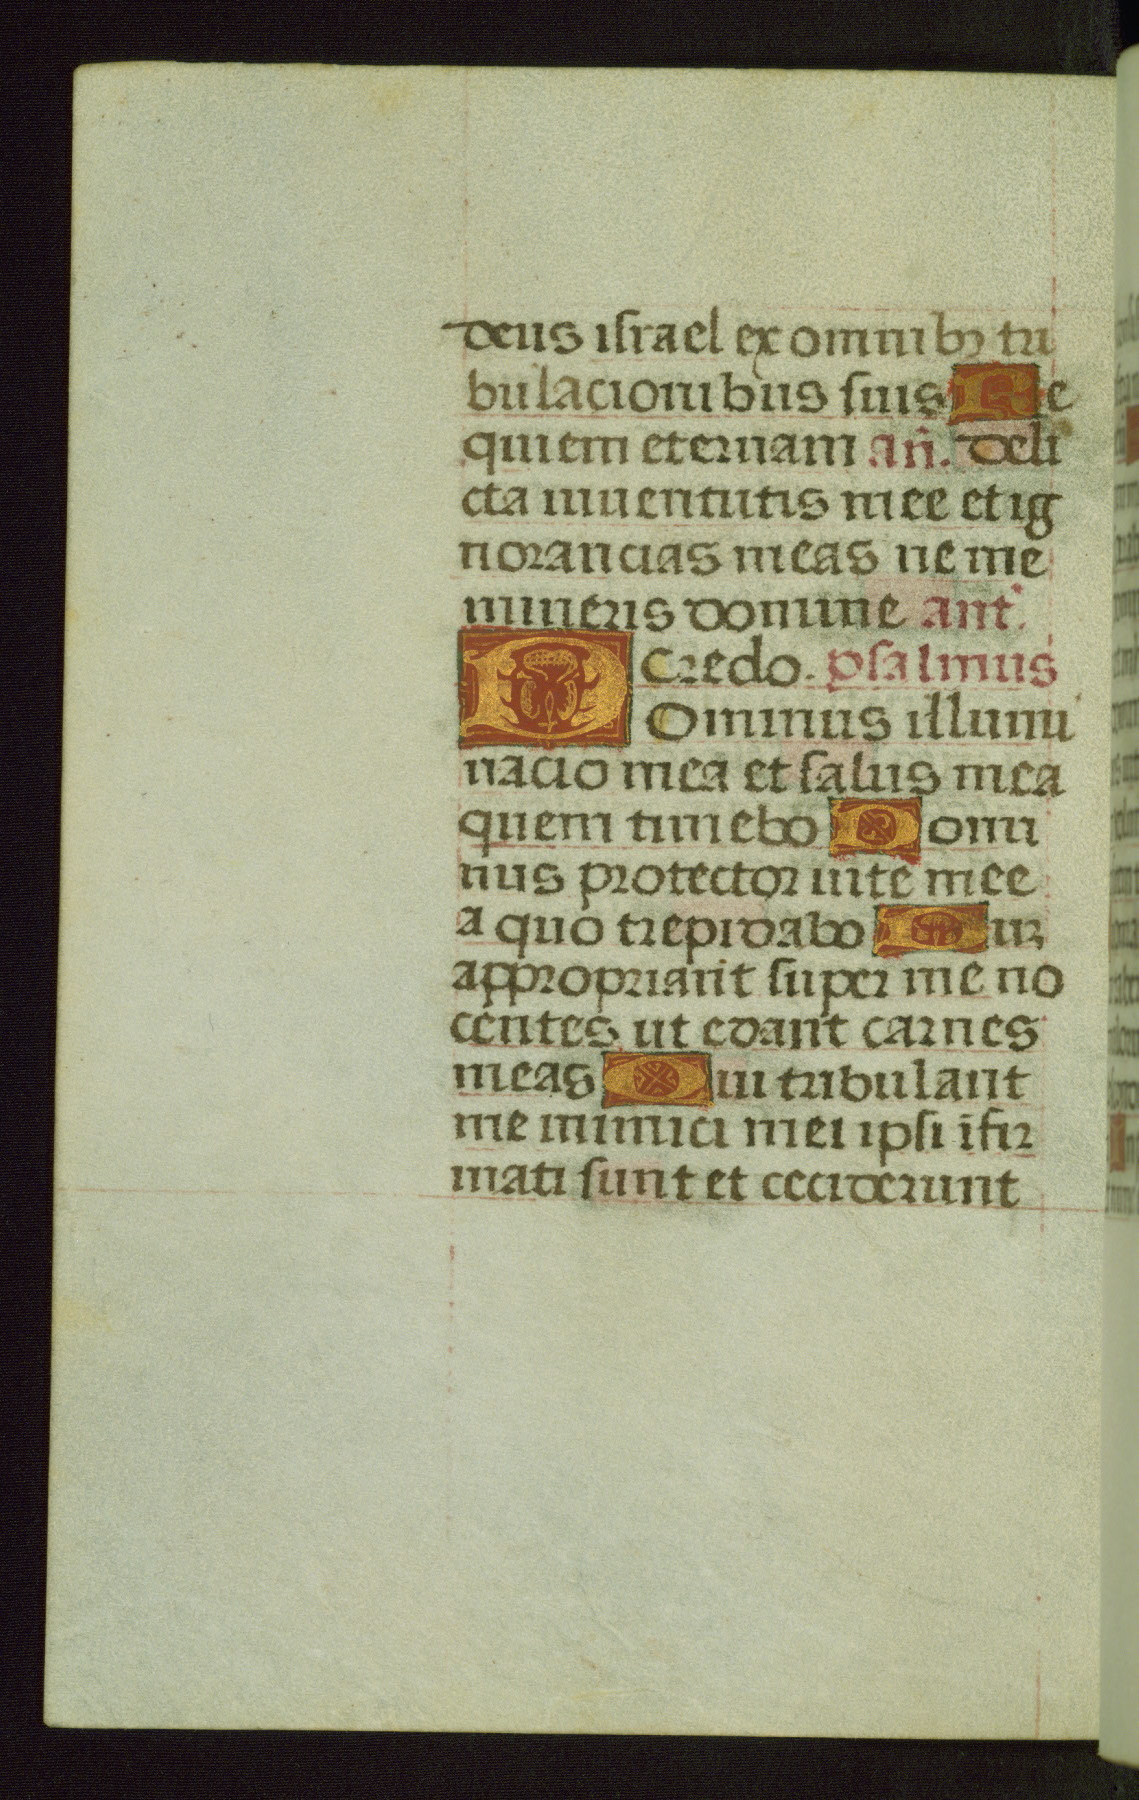 deus israel ex omnibꝫ tri
bulacionibus suis Re
quiem eternam añ. Deli
cta iuuentutis mee et ig
norancias meas ne me
mineris domine ant.
Credo. psalmus
Dominus illumi
nacio mea et salus mea
quem timebo Domi
nus protector uite mee
a quo trepidabo Dum
appropriant super me no
centes ut edant carnes
meas Qui tribulant
me inimici mei ipsi īfir
mati sunt et ceciderunt